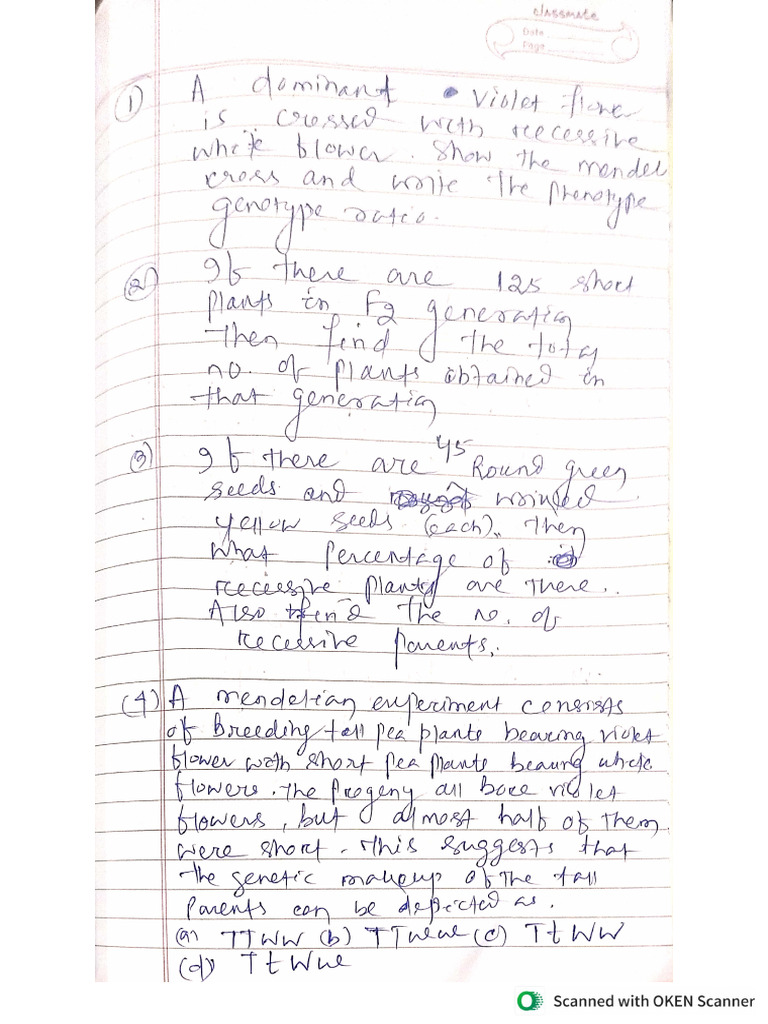 classmate
Date
Page
(1) A dominant violet flower
is crossed with recessive
white flower. Show the mendel
cross and write the Phenotype
genotype ratio.
(2) If there are 125 short
plants in F2 generation
Then find the total
no. of plants obtained in
that generation
(3) If there are 45 Round green
seeds and wrinkled
yellow seeds (each). Then
what percentage of
recessive plants are there..
Also find the no. of
recessive parents.
(4) A mendelian experiment consists
of Breeding tall pea plants bearing violet
flower with short pea plants bearing white
flowers. The progeny all bore violet
flowers, but almost half of them
were short. This suggests that
the genetic makeup of the tall
parents can be depicted as.
(a) TTWW (b) TTww (c) TtWW
(d) TtWw
Scanned with OKEN Scanner